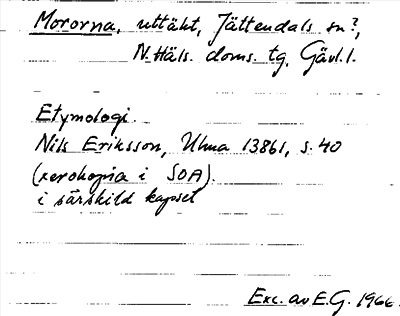 Mororna, uttäkt, Jättendals sn?,
N. Häls. doms. tg, Gävl. l.
Etymologi.
Nils Eriksson, Ulma 13861, s. 40
(xerokopia i SOA).
i särskild kapsel
Exc. av E.G. 1966.